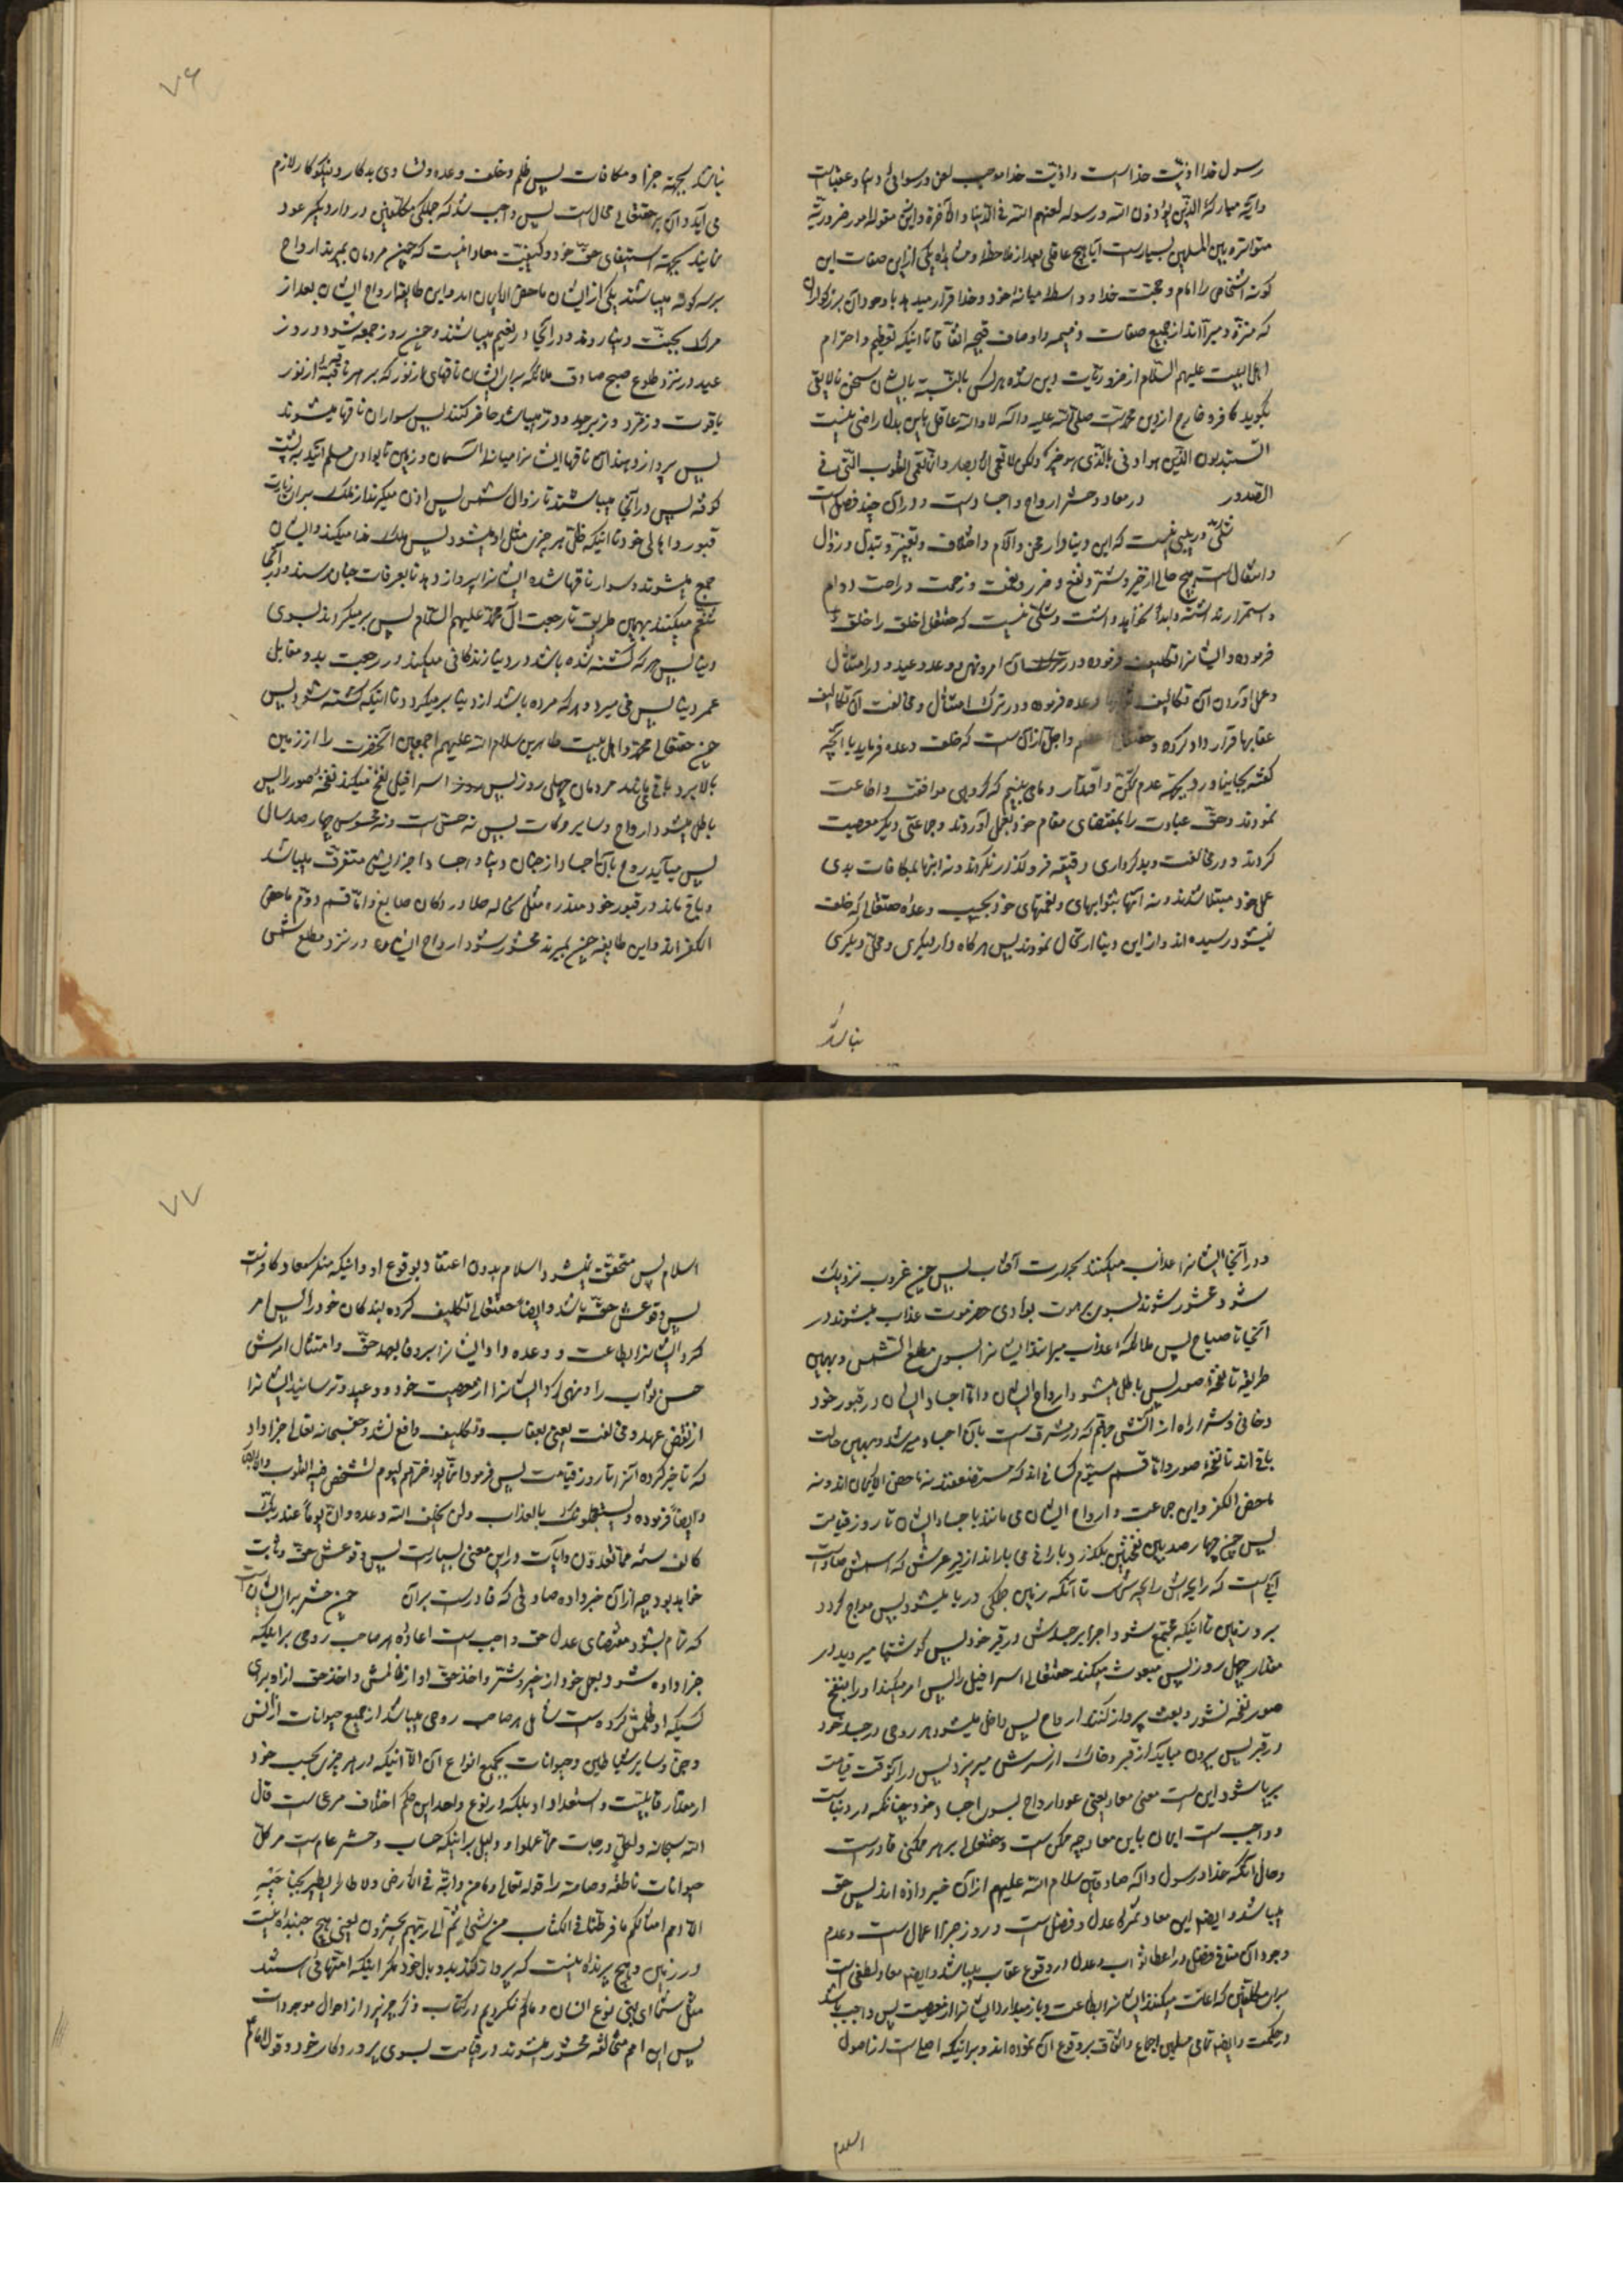 رسول خدا اذیّت خداست و اذیّت خدا موجب لعن و رسوائی دنیا و عقباست
و آیه مبارکه الذین یؤذون الله و رسوله لعنهم الله فی الدنیا و الآخرة و این مقوله امور ضروریّه
متواتره بین المسلمین بسیار است آیا هیچ عاقلی بعد از ملاحظه و مشاهده یکی از این صفات این
کونه اشخاص را امام و حجّت خدا و واسطه میانه خود و خدا قرار میدهد با وجود آن بزرکواران
که منزّه و مبرّا اند از جمیع صفات ذمیمه و اوصاف قبیحه اتفاقا تا اینکه تعظیم و احترام
اهل البیت علیهم السّلام از ضروریّات دین شده هر کس بالنّسبه بایشان سخن نالایق
بکوید کافر و خارج از دین محمّد است صلّی الله علیه و آله لا والله عاقل باین بدل راضی نیست
اتستبدلون الذین هو ادنی بالذی هو خیر ولکن لا تعمی الابصار و ان تعمی القلوب التی فی
الصّدور در معاد و حشر ارواح و اجساد است و در آن چند فصل است
شکّی و ریبی نیست که این دنیا دار محن و آلام و اختلاف و تغییر و تبدّل و زوال
و انتقال است هیچ حالی از خیر و شر و نفع و ضرر و نعمت و زحمت و راحت دوام
و استمرار نداشته و ابداً نخواهد داشت و شکّی نیست که حقتعالی خلق را خلق
فرموده و ایشانرا تکلیف فرموده و در آن امر و نهی و وعد و وعید و در امتثال
و عمل آوردن آن تکالیف ثوابها وعده فرموده و در ترک امتثال و مخالفت آن تکالیف
عقابها قرار داد کرده و حقتعالی اعظم و اجلّ از آنست که خلف وعده فرماید یا آنچه
کفته بجا نیاورد بجهة عدم تمکّن و اقتدار و ما می بینیم که کروهی موافقت و اطاعت
نمودند و حقّ عبادت را بمقتضای مقام خود بعمل آوردند و جماعتی دیکر معصیت
کردند و در مخالفت و بدکرداری دقیقه فرو نکذار نکردند و نه اینها بمکافات بدی
عمل خود مبتلا شدند و نه آنها بثوابهای و نعمتهای خود بحسب وعده حقتعالی که خلف
نمیشود رسیده اند و از این دنیا ارتحال نمودند پس هرکاه دار دیکری و محلّ دیکری
نباشد
۷۶
نباشد بجهة جزا و مکافات پس ظلم و خلف وعده و تساوی بدکار و نیکوکار لازم
می آید و آن بر حقتعالی محال است پس واجب شد که جملکی مکلّفین در دار دیکر عود
نمایند بجهة استیفای حقّ خود و کیفیّت معاد اینست که چون مردمان بمیرند ارواح
بر سه کونه میباشند یکی از ایشان ماحض الایمان اند و این طایفه ارواح ایشان بعد از
مرک بجنّت دنیا روند و در آنجا در نعیم میباشند و چون روز جمعه شود و روز
عید در نزد طلوع صبح صادق ملائکه برای ایشان ناقهای از نور که بر هر ناقه قبّه از نور
یاقوت و زمرّد و زبرجد و درّ میباشد حاضر کنند پس سواران ناقها میشوند
پس پرواز دهند آن ناقها ایشانرا میانه آسمان و زمین تا بوادی سلم آیند به پشت
کوفه پس در آنجا میباشند تا زوال شمس پس اذن میکیرند از ملک برای زیارت
قبور و اهالی خود تا اینکه ظلّ هر چیزی مثل او میشود پس ملک ندا میکند و ایشان
جمع میشوند و سوار ناقها شده ایشانرا پرواز دهد تا بغرفات جنان رسند و در آنجا
تنعّم میکنند بهمین طریق تا رجعت آل محمّد علیهم السّلام پس بر میکردند بسوی
دنیا پس هر که کشته شده باشد در دنیا زندکانی میکند در رجعت بدو مقابل
عمر دنیا پس می میرد و هر که مرده باشد از دنیا بر میکردد تا اینکه کشته شود پس
چون حقتعالی محمّد و اهل بیت طاهرین سلام الله علیهم اجمعین آنحضرت را از زمین
بالا برد باقی بمانند مردمان چهل روز پس اسرافیل نفخ میکند نفخه صور را پس
باطل میشود ارواح و سایر حرکات پس نه حسّی است و نه محسوسی چهار صد سال
پس میآید روح بآن اجساد از جنان دنیا و اجساد اجزایش متفرّق میباشد
و باقی ماند در قبور خود مستدیره مثل سحاله طلا در دکان صایغ و امّا قسم دوّم ماحض
الکفر اند و این طایفه چون بمیرند محشور شود ارواح ایشان در نزد مطلع شمس
و در آنجا ایشانرا عذاب میکنند بحرارت آفتاب پس چون غروب نزدیک
شود محشور شوند بسوی برهوت بوادی حضرموت عذاب میشوند در
آنجا تا صباح پس ملائکه عذاب میرانند ایشانرا بسوی مطلع الشّمس و بهمین
طریقه تا نفخه صور پس باطل میشود ارواح ایشان و امّا اجساد ایشان در قبور خود
دخانی و شراره از آتش جهنّم که در مشرق است بآن اجساد میرسد و بهمین حالت
باقی اند تا نفخه صور و امّا قسم سیّم کسانی اند که مستضعفند نه ماحض الایمان اند و نه
ماحض الکفر و این جماعت ارواح ایشان می مانند با اجساد ایشان تا روز قیامت
پس چون چهار صد بین نفختین بکذرد بارانی می باراند از زیر عرش که اسمش صاد است
آبیست که رایحه اش رایحه منی است تا آنکه زمین جملکی دریا میشود پس موّاج کردد
بر روی زمین تا اینکه مجتمع شود اجزا بر جسدش در قبر خود پس کوشتها میروید در
مقدار چهل روز پس مبعوث میکند حقتعالی اسرافیل را پس امر میکند او را بنفخ
صور نفخه نشور و بعث پرواز کنند ارواح پس داخل میشود هر روحی در جسد خود
در قبر پس بیرون میآید از قبر و خاک از سرش میریزد پس در آنوقت قیامت
برپا شود این است معنی معاد یعنی عود ارواح بسوی اجساد خود چنانکه در دنیاست
و واجب است ایمان باین معاد چه ممکن است و حقتعالی بر هر ممکنی قادر است
و حال آنکه خدا و رسول و آله صادقین سلام الله علیهم از آن خبر داده اند پس حق
میباشد و ایضا این معاد ثمره عدل و فضل است و روز جزاء اعمال است و عدم
وجود آن منافی فضل در اعطاء ثواب و عدل در وقوع عقاب میباشد و ایضا معاد لطفی است
برای مکلّفین که اعانت میکند ایشانرا بطاعت و باز میدارد ایشانرا از معصیت پس واجب باشد
در حکمت و ایضا تمامی مسلمین اجماع و اتّفاق بر وقوع آن نموده اند و بر اینکه اصلی است از اصول
اسلام
۷۷
اسلام پس متحقّق نمیشود اسلام بدون اعتقاد بوقوع او و اینکه منکر معاد کافر است
پس وقوعش حقّ باشد و ایضا حقتعالی تکلیف کرده بندکان خود را پس امر
کرد ایشانرا بطاعت و وعده داد ایشانرا بر وفا بعهد حقّ و امتثال امرش
حسن ثواب را و نهی کرد ایشانرا از معصیت خود و وعید و ترسانید ایشانرا
از نقض عهد و مخالفت یعنی بعقاب و تکلیف واقع شد و حقّ سبحانه تعالی جزا داد
که تأخیر کرده آنرا تا روز قیامت پس فرمود انّما نؤخّرهم لیوم تشخص فیه القلوب والابصار
و ایضا فرموده و یستعجلونک بالعذاب ولن یخلف الله وعده و انّ یوماً عند ربّک
کالف سنة مما تعدّون و آیات در این معنی بسیار است پس وقوعش حقّ و ثابت
خواهد بود چه از آن خبر داده صادقی که قادر است بر آن چون حشر برای ایشان است
که تمام بشود مقتضای عدل حقّ واجب است اعاده هر صاحب روحی برای اینکه
جزا داده شود بعمل خود از خیر و شرّ و اخذ حقّ او از ظالمش و اخذ حق از او برای
کسیکه او ظلمش کرده است شامل هر صاحب روحی میباشد از جمیع حیوانات از انس
و جنّ و سایر شیاطین و حیوانات بجمیع انواع آن الّا اینکه در هر چیزی بحسب خود
از مقدار قابلیّت و استعداد او بلکه در نوع واحد این حکم اختلاف مرعی است قال
الله سبحانه و لکلّ درجات ممّا عملوا و دلیل بر اینکه حساب و حشر عام است مر کلّ
حیوانات ناطقه و صامته را قوله تعالی و ما من دابّة فی الارض و لا طائر یطیر بجناحیه
الّا امم امثالکم ما فرّطنا فی الکتاب من شیءٍ ثمّ الی ربّهم یحشرون یعنی هیچ جنبنده نیست
در زمین و هیچ پرنده نیست که پرواز کند بدو بال خود مکر اینکه امّتهائی هستند
مثل شما ای بنی نوع انسان و ما کم نکردیم در کتاب ذکر چیزی را از احوال موجودات
پس این امم مختلفه محشور میشوند در قیامت بسوی پروردکار خود و قول امام